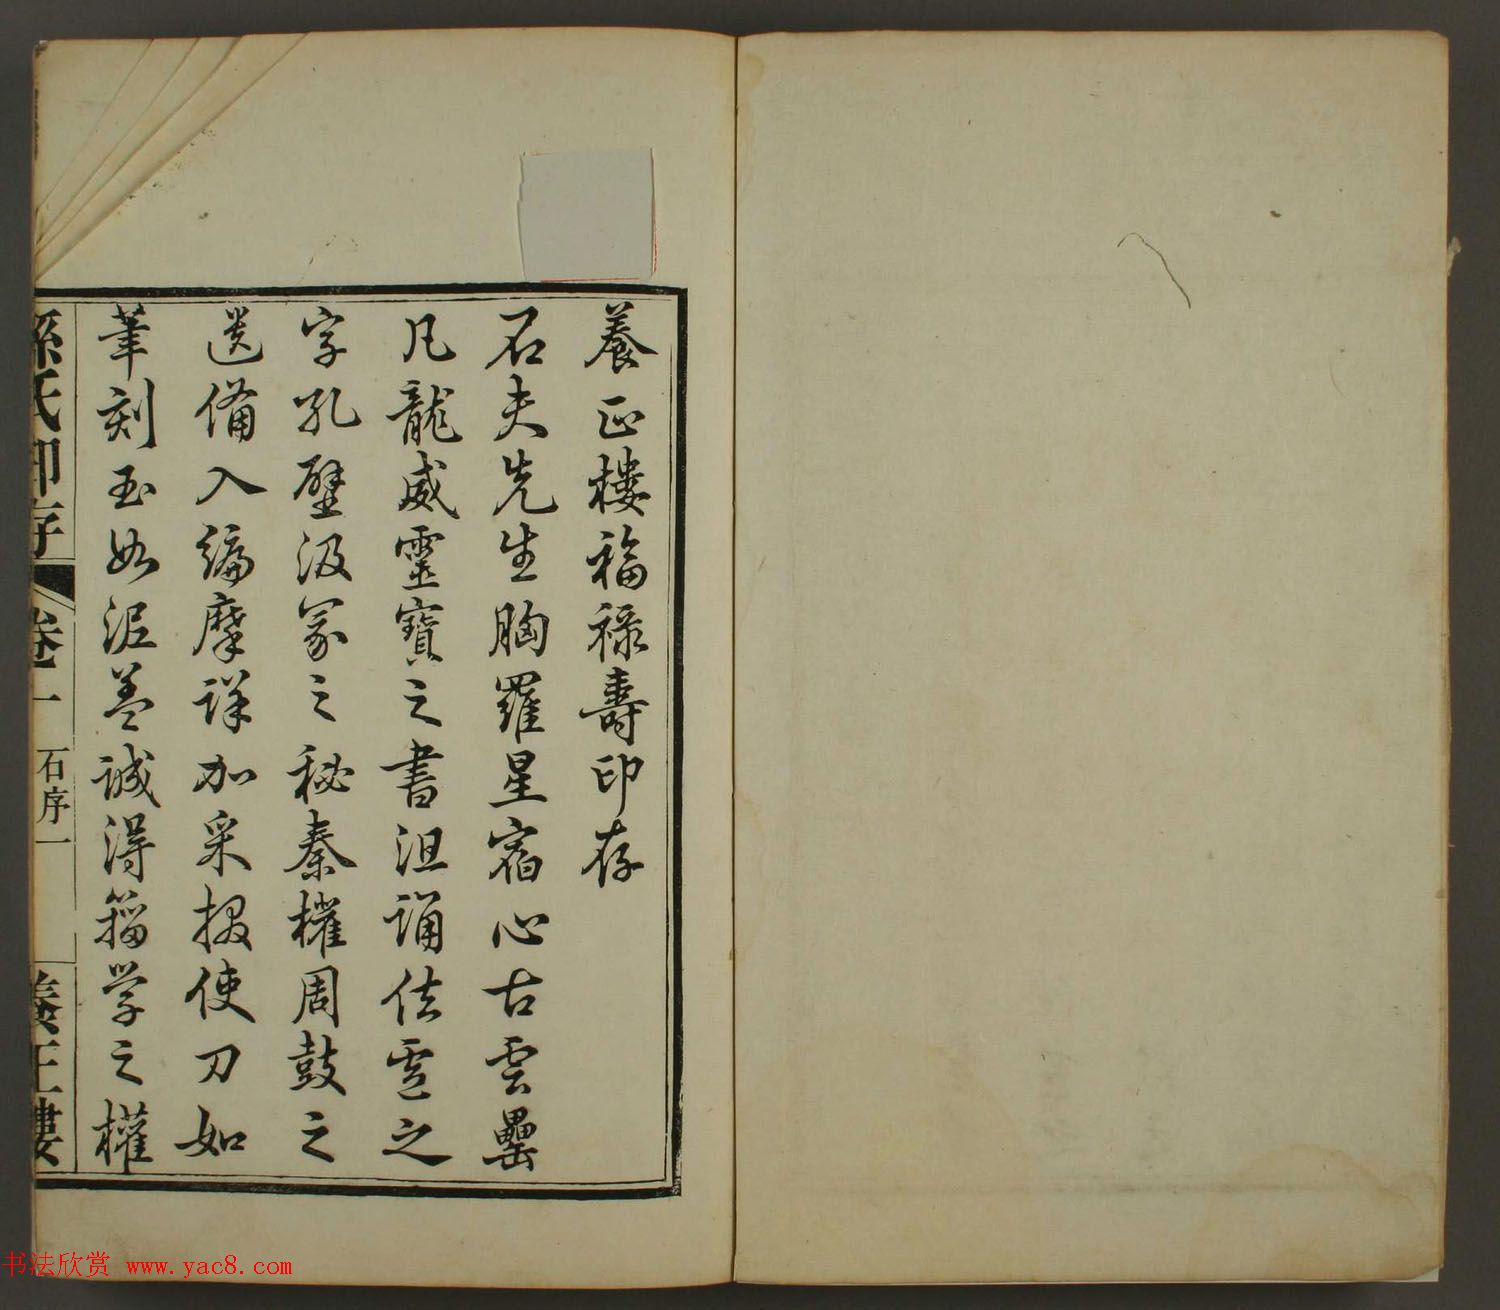 養正樓福祿壽印存
石夫先生胸羅星宿心古雲罍
凡龍威靈寶之書沮誦佉盧之
字孔壁汲冢之秘秦權周鼓之
遺備入編摩詳加采掇使刀如
筆刻玉如泥蓋誠得籀學之權
孫氏印存 卷一 石序一 養正樓
书法欣赏 www.yac8.com